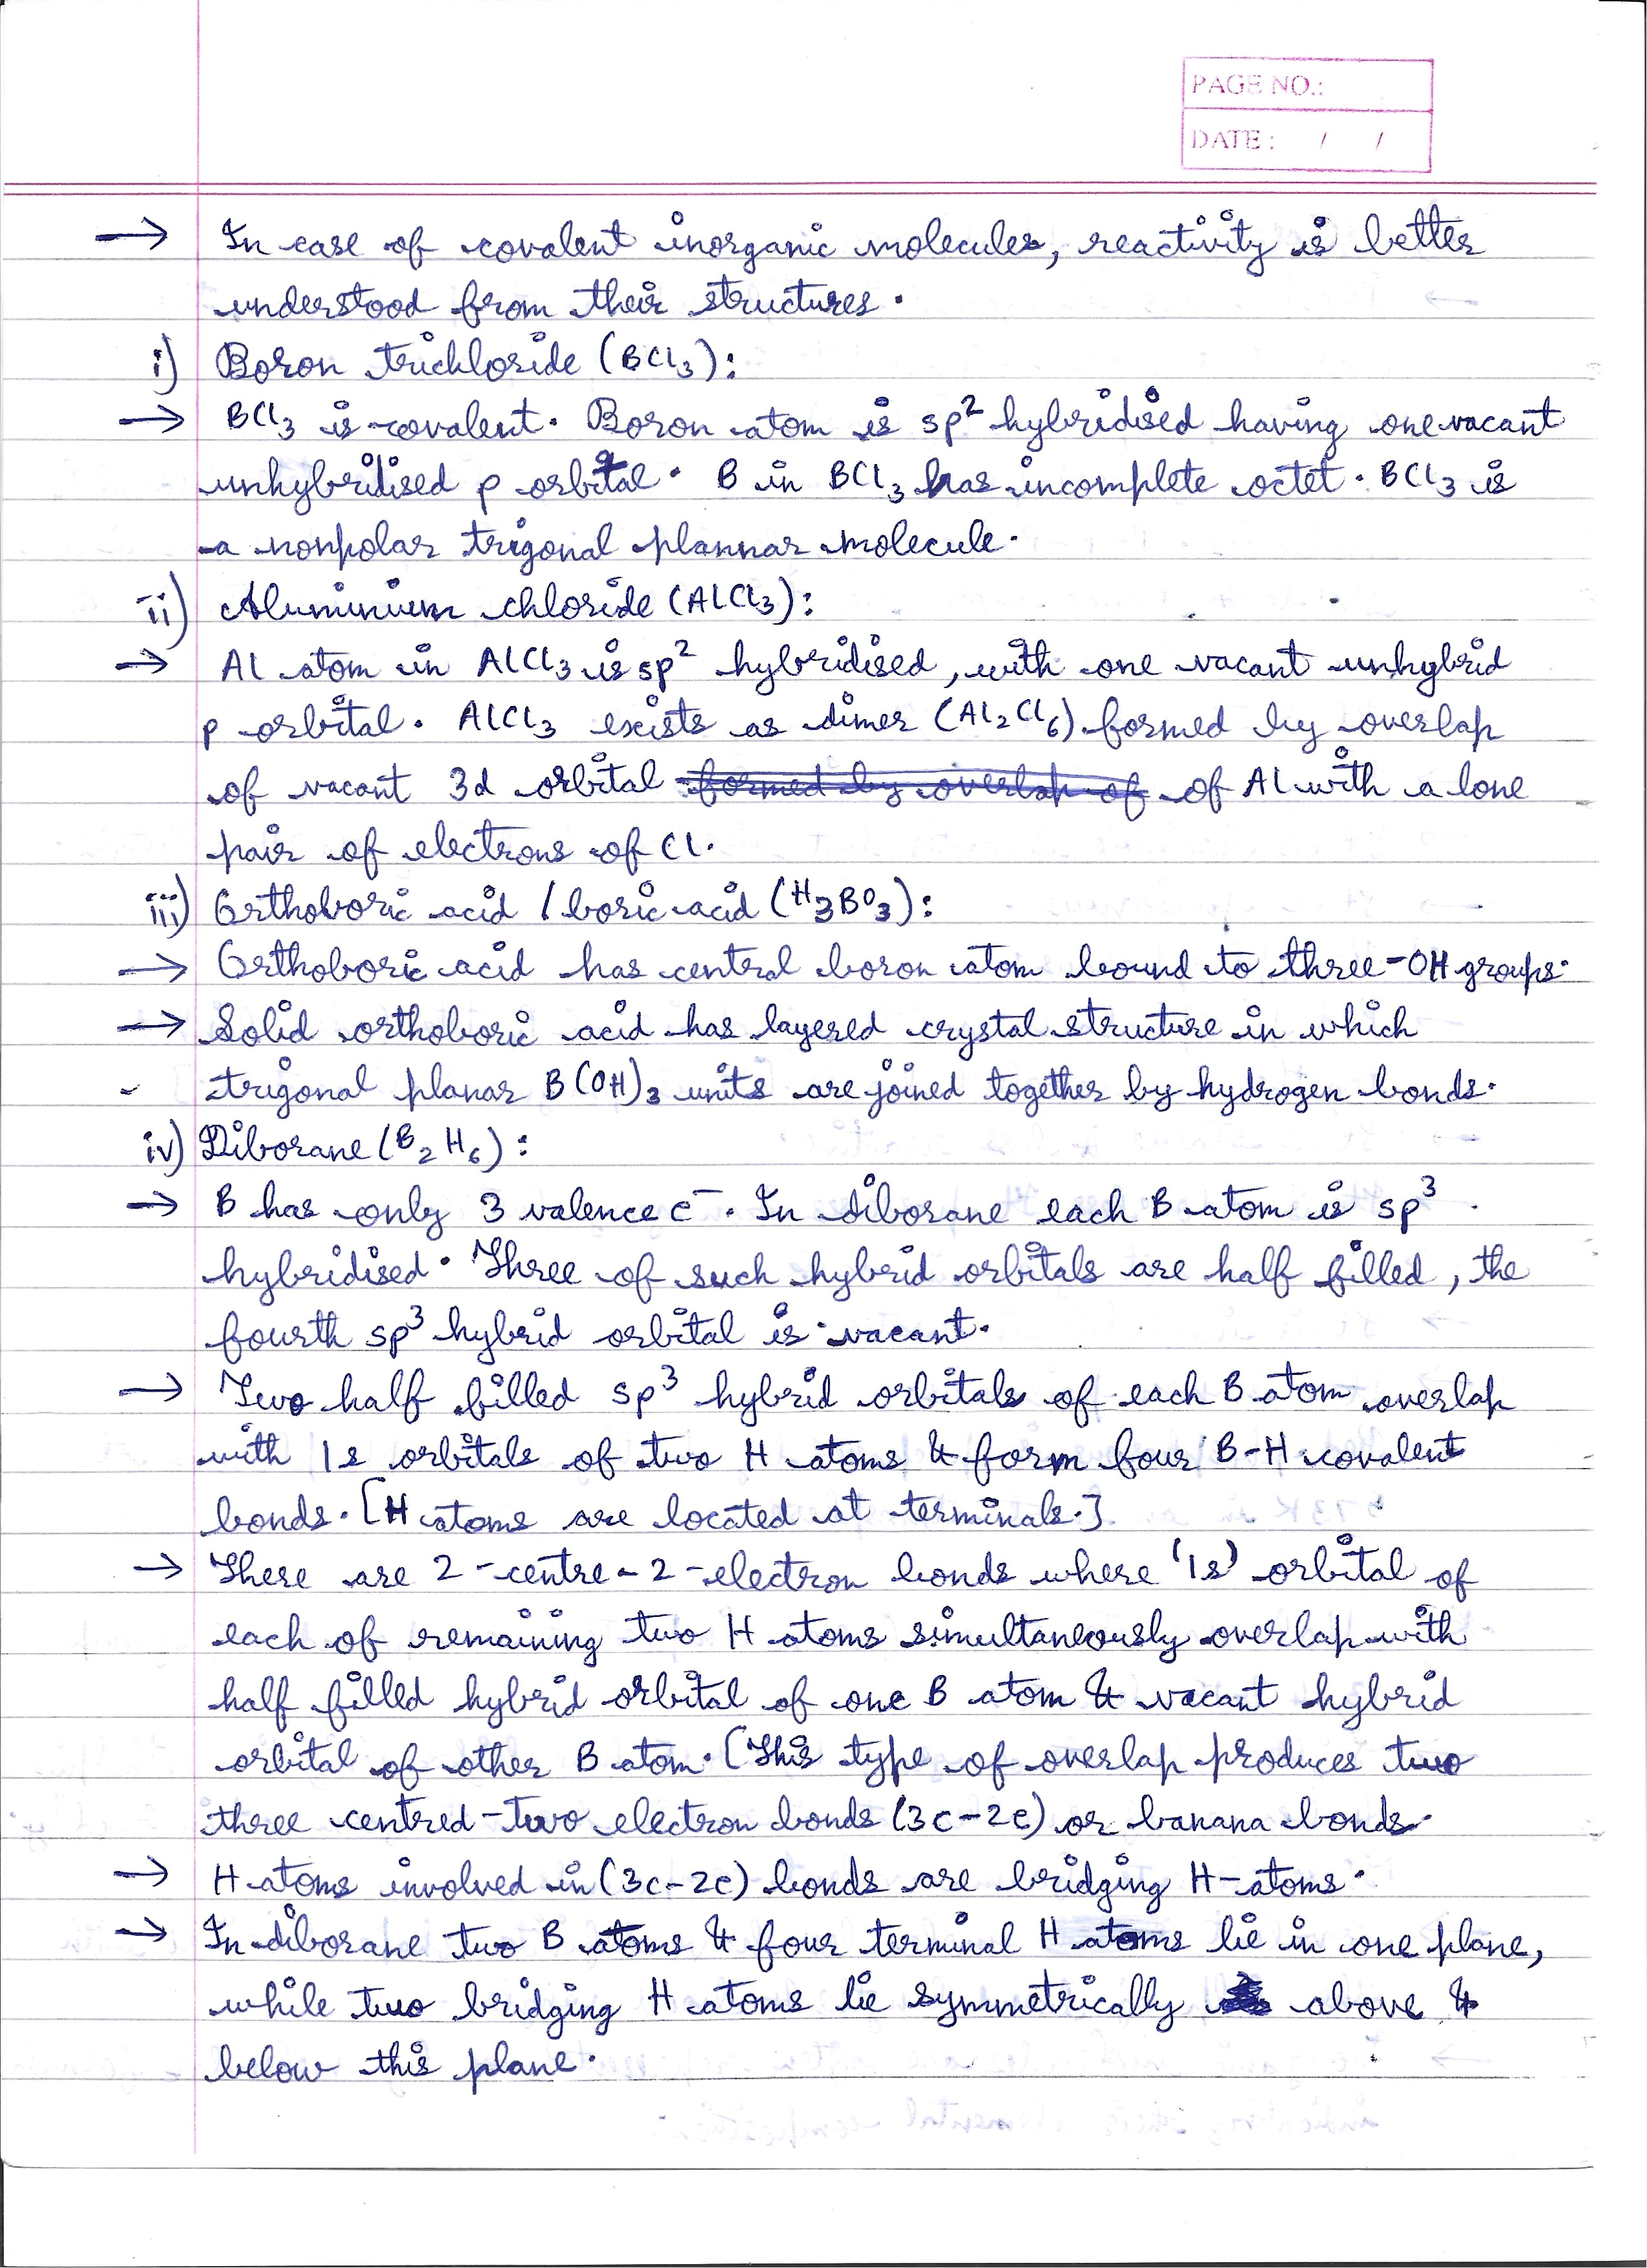 PAGE NO.:
DATE : / /
→ In case of covalent inorganic molecules, reactivity is better
understood from their structures.
i) Boron trichloride (BCl₃):
→ BCl₃ is covalent. Boron atom is sp² hybridised having one vacant
unhybridised p orbital. B in BCl₃ has incomplete octet. BCl₃ is
a nonpolar trigonal plannar molecule.
ii) Aluminium chloride (AlCl₃):
→ Al atom in AlCl₃ is sp² hybridised, with one vacant unhybrid
p orbital. AlCl₃ exists as dimer (Al₂Cl₆) formed by overlap
of vacant 3d orbital formed by overlap of of Al with a lone
pair of electrons of Cl.
iii) Orthoboric acid / boric acid (H₃BO₃):
→ Orthoboric acid has central boron atom bound to three -OH groups.
→ Solid orthoboric acid has layered crystal structure in which
trigonal planar B(OH)₃ units are joined together by hydrogen bonds.
iv) Diborane (B₂H₆):
→ B has only 3 valence e⁻. In diborane each B atom is sp³
hybridised. Three of such hybrid orbitals are half filled, the
fourth sp³ hybrid orbital is vacant.
→ Two half filled sp³ hybrid orbitals of each B atom overlap
with 1s orbitals of two H atoms & form four B-H covalent
bonds. [H atoms are located at terminals.]
→ There are 2-centre-2-electron bonds where '1s' orbital of
each of remaining two H atoms simultaneously overlap with
half filled hybrid orbital of one B atom & vacant hybrid
orbital of other B atom. [This type of overlap produces two
three centred-two electron bonds (3c-2e) or banana bonds.
→ H atoms involved in (3c-2e) bonds are bridging H-atoms.
→ In diborane two B atoms & four terminal H atoms lie in one plane,
while two bridging H atoms lie symmetrically above &
below this plane.